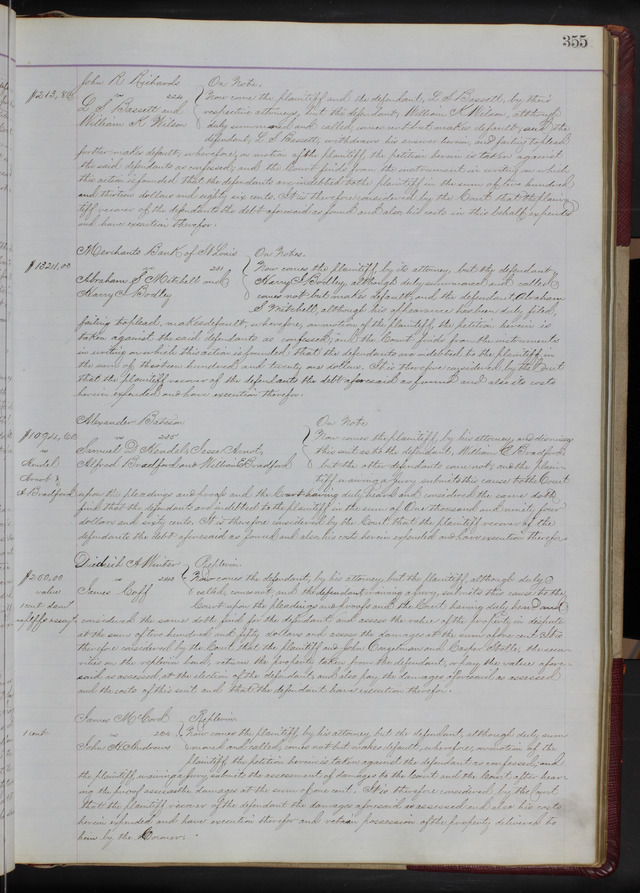 355
John R Richards On Note.
$213.86 vs 224 Now come the plaintiff and the defendant, L S Bassett, by their
L S Bassett and respective attorneys, but the defendant, William K Wilson, although
William K Wilson duly summoned and called, comes not but makes default; and the
defendant, L S Bassett, withdraws his answer herein, and failing to plead
further makes default; wherefore, on motion of the plaintiff, the petition herein is taken against
the said defendants as confessed; and the Court finds from the instrument in writing on which
this action is founded that the defendants are indebted to the plaintiff in the sum of two hundred
and thirteen dollars and eighty six cents. It is therefore considered by the Court that the plain
tiff recover of the defendants the debt aforesaid as found and also his costs in this behalf expended
and have execution therefor.
Merchants Bank of St Louis On Notes.
$1320.00 vs 231 Now comes the plaintiff, by its attorney, but the defendant
Abraham S Mitchell and Harry I Bodley, although duly summoned and called
Harry I Bodley comes not but makes default, and the defendant, Abraham
S Mitchell, although his appearance has been duly filed,
failing to plead, makes default; wherefore, on motion of the plaintiff, the petition herein is
taken against the said defendants as confessed, and the Court finds from the instruments
in writing on which this action is founded that the defendants are indebted to the plaintiff in
the sum of thirteen hundred and twenty dollars. It is therefore considered by the Court
that the plaintiff recover of the defendants the debt aforesaid as found and also its costs
herein expended and have execution therefor.
Alexander On Note
$1094.60 vs 235 Now comes the plaintiff, by his attorney, and dismisses
vs Samuel D Kendel, Jesse Arnot, this suit as to the defendant, William C Bradford
Kendel Alfred Bradford and William C Bradford but the other defendants come not; and the plain
Arnot & tiff waiving a jury submits this cause to the Court
A Bradford upon the pleadings and proofs and the Court having duly heard and considered the same doth
find that the defendants are indebted to the plaintiff in the sum of One thousand and ninety four
dollars and sixty cents. It is therefore considered by the Court, that the plaintiff recover of the
defendants the debt aforesaid as found and also his costs herein expended and have execution therefor
Diedrich A Winter Replevin.
$250.00 vs 240 Now comes the defendant, by his attorney, but the plaintiff, although duly
value James Goff called, comes not, and the defendant waiving a jury, submits this cause to the
1 cent dam Court upon the pleadings and proofs and the Court having duly heard and
considered the same doth find for the defendant and assess the value of the property in dispute
at the sum of two hundred and fifty dollars and assess the damages at the sum of one cent. It is
therefore considered by the Court, that the plaintiff and John and Casper Stolle, the secu
rities on the replevin bond, return the property taken from the defendant, or pay the value afore-
said as assessed, at the election of the defendant, and also pay the damages aforesaid as assessed
and the costs of this suit and that the defendant have execution therefor.
James McCord Replevin.
1 cent vs Now comes the plaintiff, by his attorney, but the defendant, although duly sum
John A Andrews moned and called, comes not but makes default; wherefore, on motion of the
plaintiff the petition herein is taken against the defendant as confessed; and
the plaintiff, waiving a jury, submits the assessment of damages to the Court and the Court after hear-
ing the proof assesses the damages at the sum of one cent. It is therefore considered by the Court
that the plaintiff recover of the defendant the damages aforesaid as assessed and also his costs
herein expended and have execution therefor and retain possession of the property delivered to
him by the Coroner.